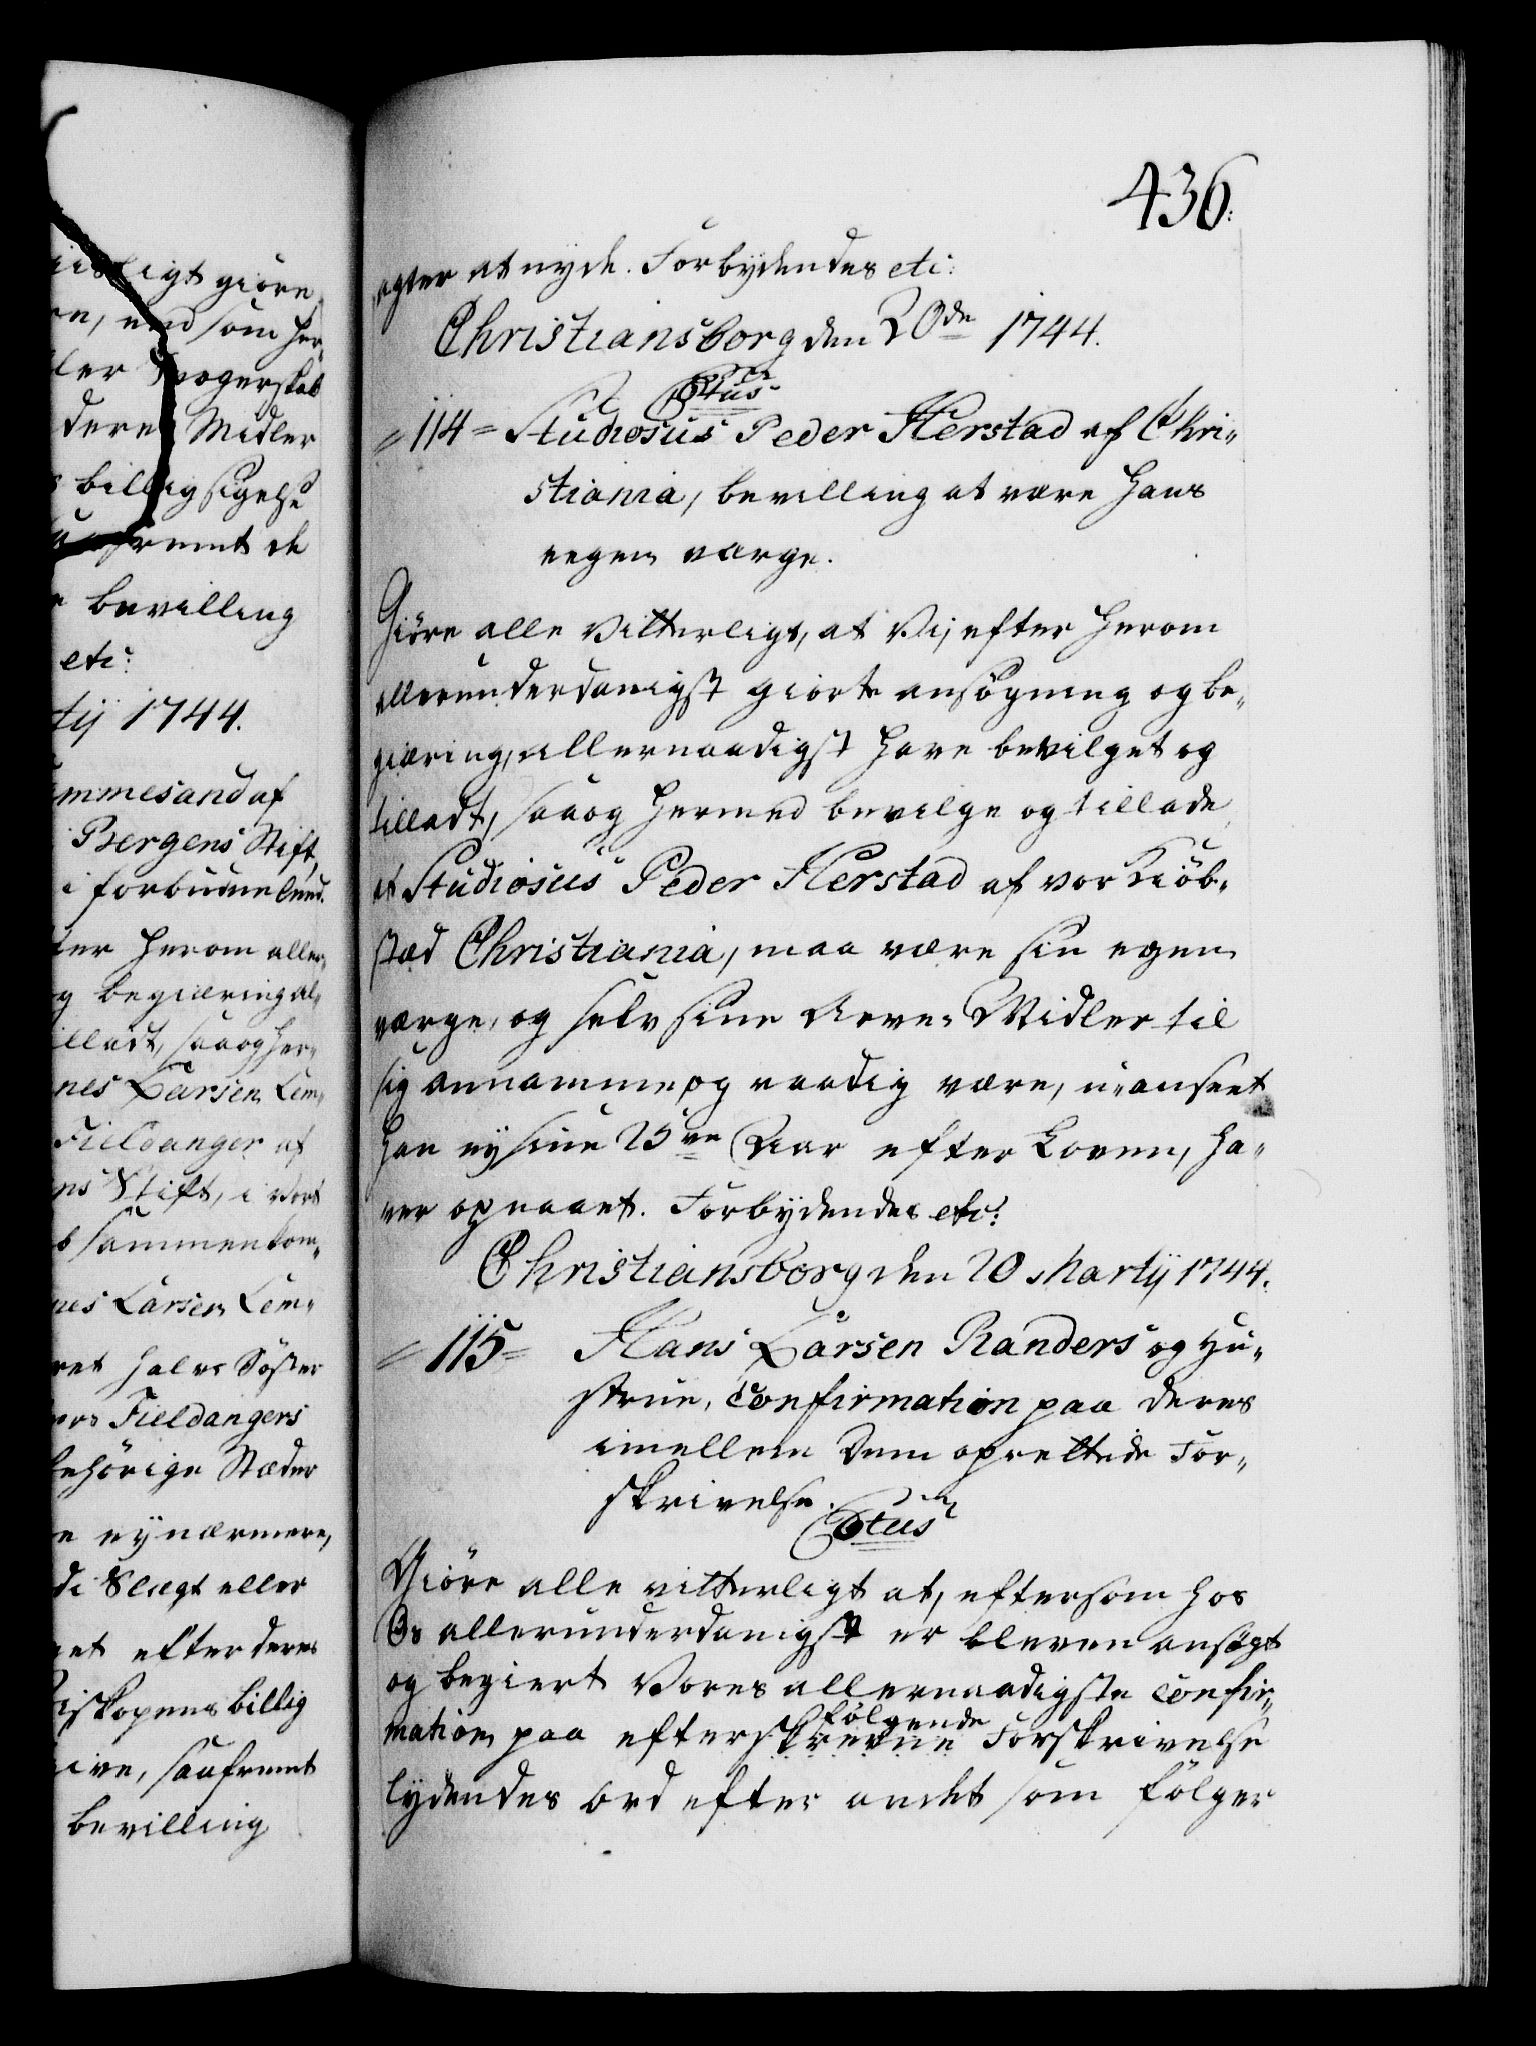 iskligt giøre
re, end som her-
ller Svogerskab
dere Midler
s billigsigelse
saafremt de
e bevilling
etc:
tij 1744.
mmesand af
Bergens Stift,
i forbudne leed.
ter herom aller-
g begiæring al-
illadt, saa og her-
nes Larsen Lem-
Fieldanger af
ns Stift, i vort
b sammenkom-
nes Larsen Lem-
ret halve Søster
ers Fieldangers
behörige Stæder
e ey nærmere,
di Slægt eller
get efter deres
Biskopens billig
give, saafremt
bevilling
436.
agter at nyde. Forbydendes etc:
Christiansborg den 20de 1744.
C6tus
= 114 = Studiosus Peder Herstad af Chri-
stiania, bevilling at være hans
eegen værge.
Giöre alle Vitterligt, at Vi, efter herom
allerunderdanigst giorte ansögning og be-
giæring, allernaadigst have bevilget og
tilladt, saa og hermed bevilge og tillade,
at Studiosus Peder Herstad af vor Kiöb-
stæd Christiania, maa være sin egen
værge, og selv sine Arve-Midler til
sig annamme, og raadig være, u-anseet
han ey sine 25ve Aar efter Loven, ha-
ver opnaaet. Forbydendes etc:
Christiansborg den 20 Martij 1744.
= 115 = Hans Larsen Randers og Hu-
strue, Confirmation paa deres
imellem Dem oprettede For-
skrivelse.
C6tus
Giöre alle vitterligt at, eftersom hos
Os allerunderdanigst er bleven ansögt
og begiert Vores allernaadigste confir-
mation paa efterskrevne Forskrivelse
følgende
lydendes ord efter andet som fölger